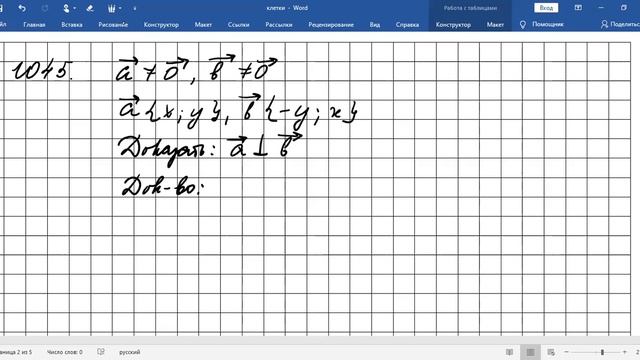 клетки - Word
Работа с таблицами
Вход
Главная Вставка Рисование Конструктор Макет Ссылки Рассылки Рецензирование Вид Справка Конструктор Макет Помощник Поделиться
1045. a⃗ ≠ 0⃗, b⃗ ≠ 0⃗
a⃗ {x; y}, b⃗ {-y; x}
Доказать: a⃗ ⊥ b⃗
Док-во:
аница 2 из 5 Число слов: 0 русский